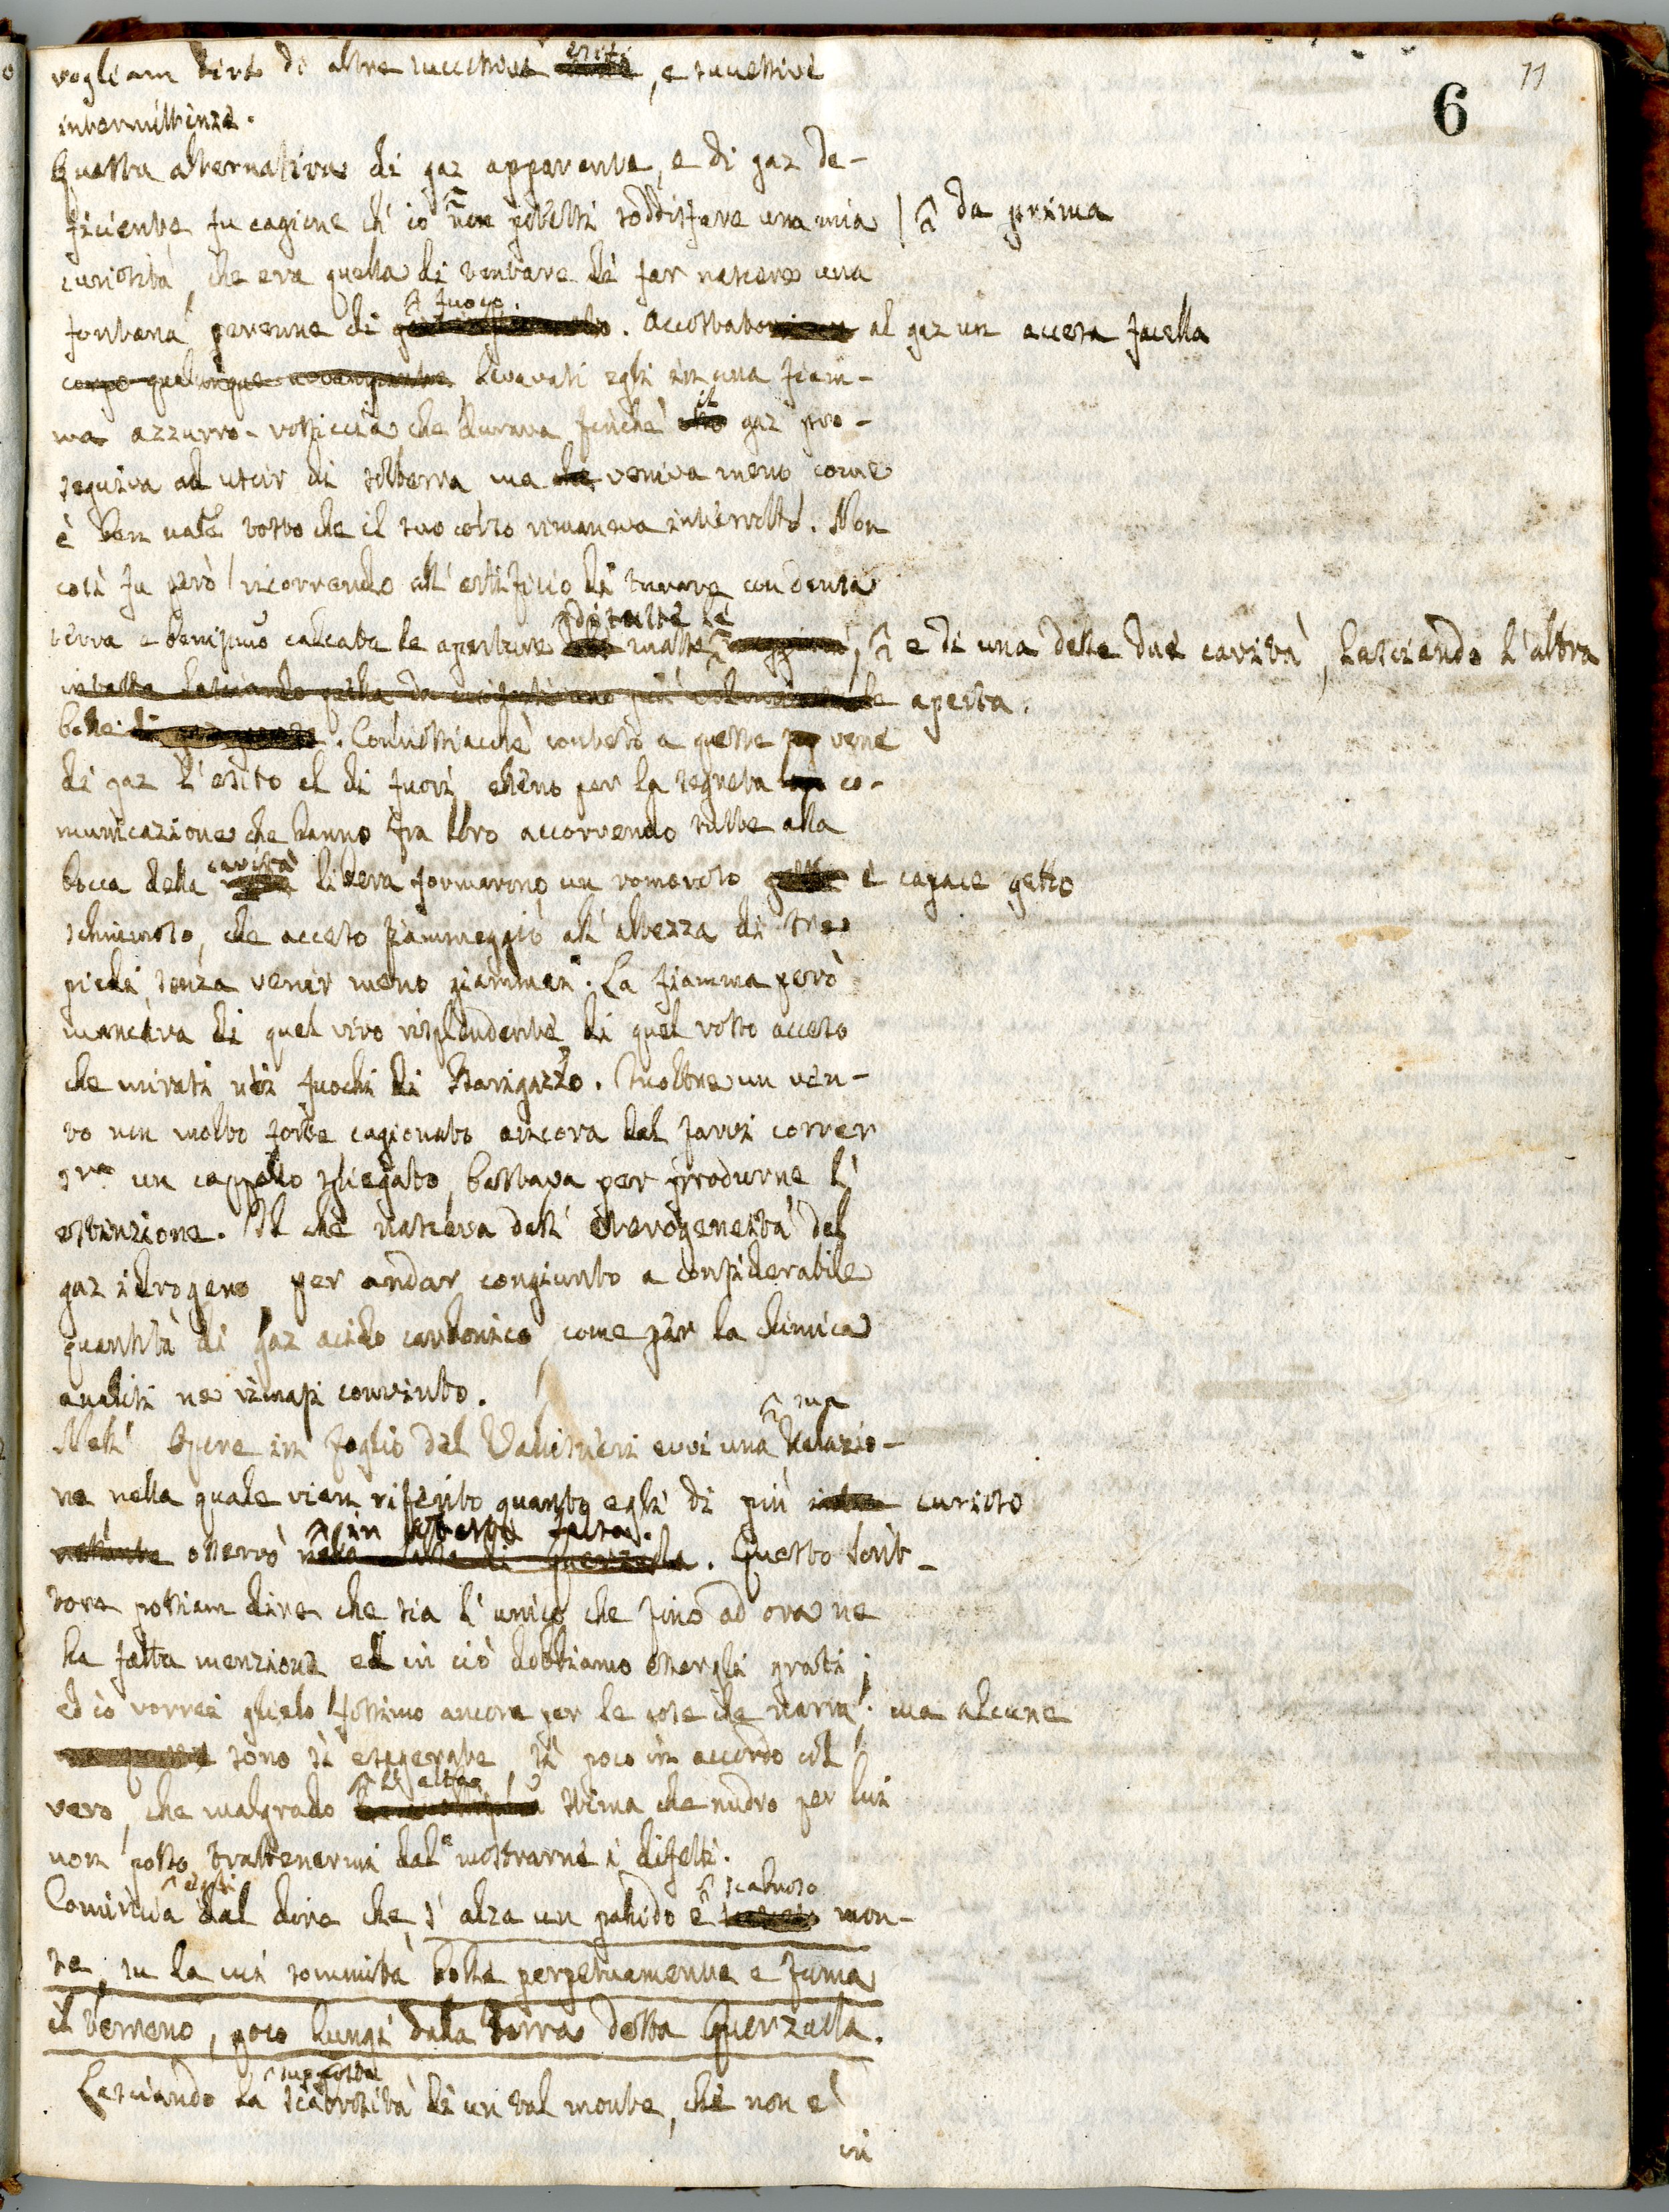 11
6
vogliam dire di altre successive esiti, e successive
intermittenze.
Questa alternativa di gaz apparente, e di gaz de-
ficiente fu cagione ch' io non potessi soddisfare una mia | da prima
curiosità, che era quella di tentare di far nascere una
fontana perenne di fuoco. Accostato al gaz un accesa facella
corpo qualunque avvampante levavasi egli in una fiam-
ma azzurro-rossiccia che durava finchè il gaz pro-
seguiva ad uscir di sotterra ma che veniva meno come
è ben nale tosto che il suo corso rimaneva interrotto. Non
così fu però ricorrendo all' artifizio di turare con densa
terra e benissimo calcata le aperture di tutte le salse, e di una delle due cavità, lasciando l'altra
aperta.
Conciossiacchè contesо a queste vene
di gaz l'esito al di fuori, elleno per la segreta co-
municazione che hanno fra loro accorrendo tutte alla
bocca della cavità libera formarono un romoroso e capace getto
schiumoso, che acceso fiammeggiò all' altezza di tre
piedi, senza venir meno giammai. La fiamma però
mancava di quel vivo risplendente, di quel rosso acceso
che mirasi nei fuochi di Barigazzo. Inoltre un ven-
to non molto forte cagionato ancora dal farvi correr
sra un cappello spiegato, bastava per produrne l'
estinzione. Il che nasceva dall' eterogeneità del
gaz idrogeno per andar congiunto a considerabile
quantità di gaz acido carbonico, come per la chimica
analisi ne rimasi convinto.
Nell' Opere in foglio del Vallisnieri evvi una sua Relazio-
ne nella quale vien riferito quanto egli di più curioso
osservò in questa salsa. Questo Scrit-
tore possiam dire che sia l' unico che fino ad ora ne
ha fatta menzione ed in ciò dobbiamo essergli grati;
ed io vorrei glielo fossimo ancora per le cose che narra; ma alcune
sono sì esagerate, sì poco in accordo col
vero, che malgrado l' alta stima che nudro per lui
non posso trattenermi dal mostrarne i difetti.
Comincia egli dal dire che s' alza un pallido e scabroso mon-
te, su la cui sommità bolle perpetuamente e fuma
il terreno, poco lungi dalla terra detta Querzuola.
Lasciando la supposta scabrosità di un tal monte, che non è
in